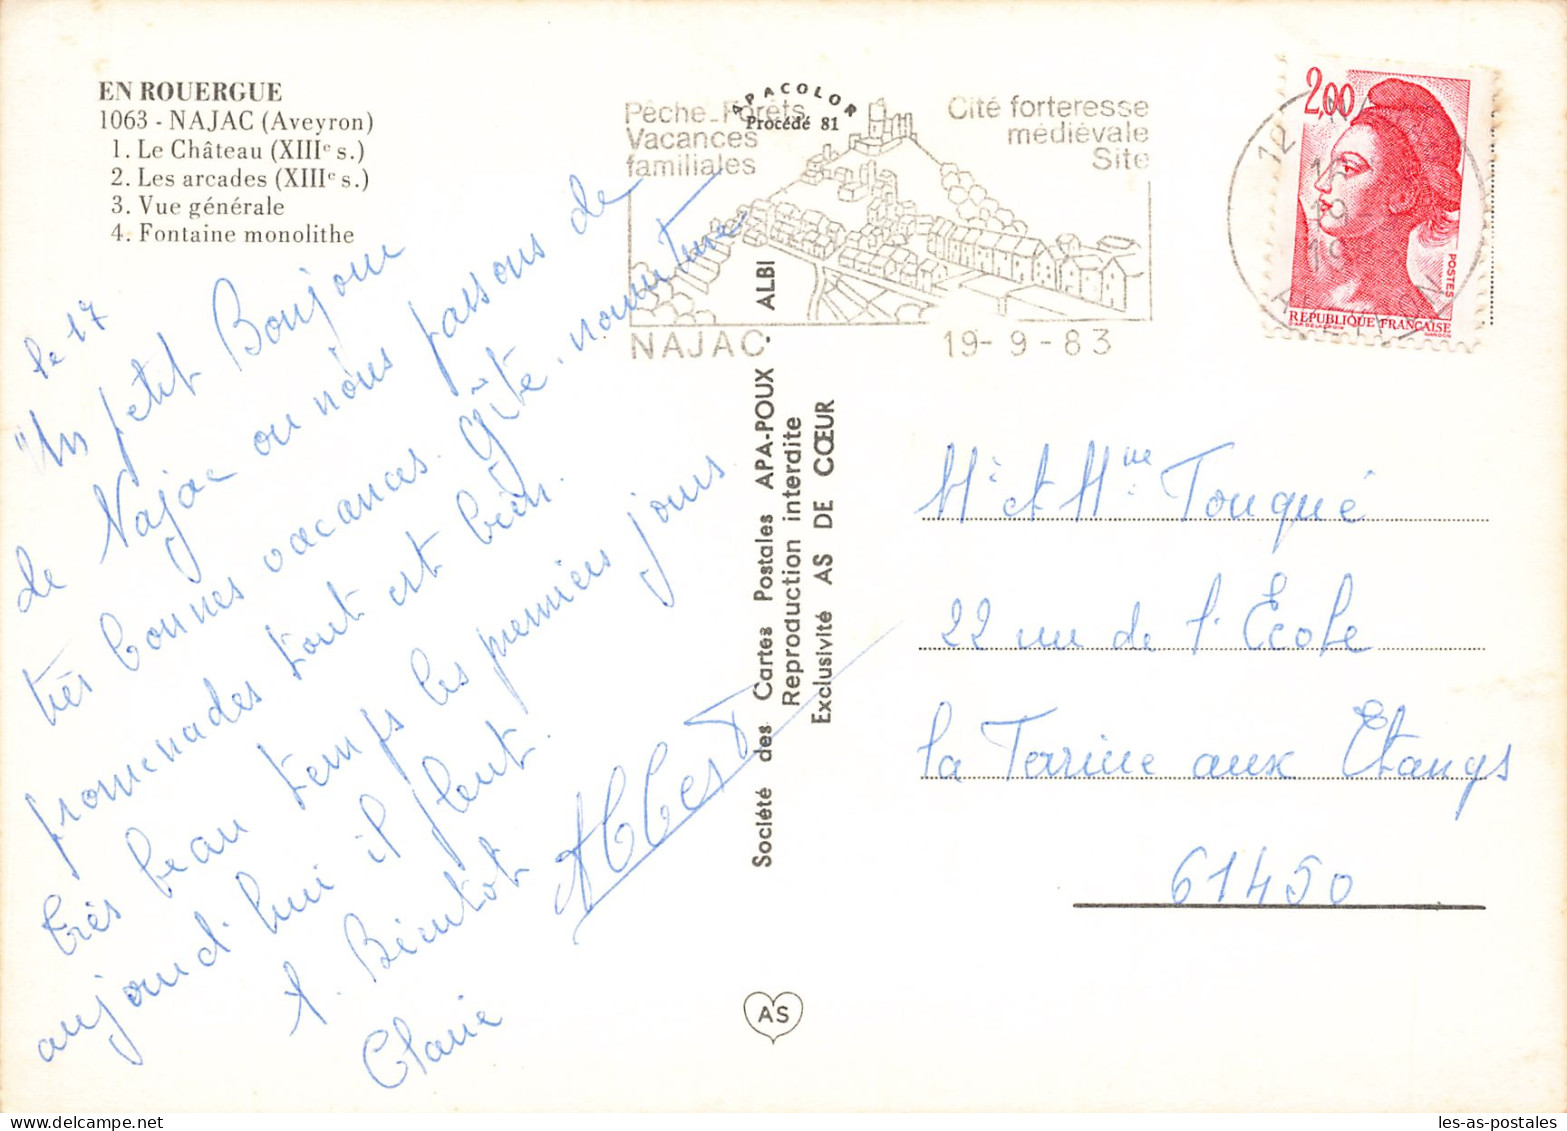 EN ROUERGUE
1063 - NAJAC (Aveyron)
1. Le Château (XIIIe s.)
2. Les arcades (XIIIe s.)
3. Vue générale
4. Fontaine monolithe
APACOLOR
Procédé 81
Pêche-Forêts
Vacances
familiales
Cité forteresse
médiévale
Site
NAJAC
19-9-83
2,00
POSTES
REPUBLIQUE FRANÇAISE
12
AVEYRON
le 17
Un petit Bonjour
de Najac ou nous passons de
très bonnes vacances. Gîte. nourriture
promenades tout est bien.
très beau temps les premiers jours
aujourd'hui il pleut.
A. Bientot
Claire
Albert
Société des Cartes Postales APA-POUX - ALBI
Reproduction interdite
Exclusivité AS DE CŒUR
AS
Mr et Mme Touqué
22 rue de l'Ecole
la Ferrière aux Etangs
61450
les-as-postales